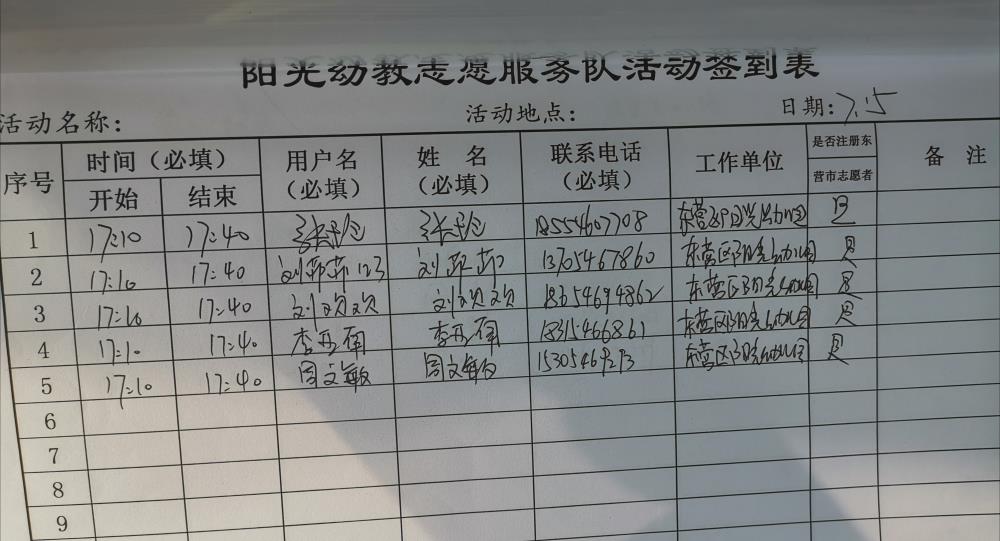 阳光幼教志愿服务队活动签到表
活动名称: 活动地点: 日期: 7.15
序号 时间(必填) 开始 结束 用户名(必填) 姓名(必填) 联系电话(必填) 工作单位 是否注册东营市志愿者 备注
1 17:10 17:40 18554607708
2 17:10 17:40 刘莎莎123 刘莎莎 13705467860 东营区阳光幼儿园 是
3 17:10 17:40 刘 刘 18654694862 东营区阳光幼儿园 是
4 17:10 17:40 李 李 18315466861 东营区阳光幼儿园 是
5 17:10 17:40 周文敏 周文敏 东营区阳光幼儿园 是
6
7
8
9